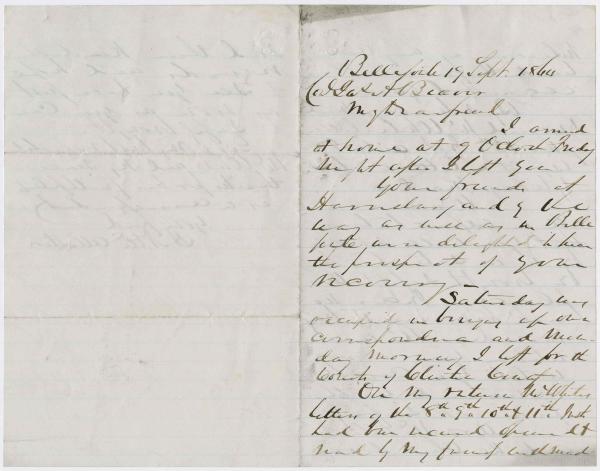 Bellefonte 19 Sept. 1864
Col Jas A Beaver
My Dear friend
I arrived
at home at 9 O'Clock Friday
Night after I left you
Your friends at
Harrisburg and by the
way as well as in Belle
fonte are delighted to hear
the prospect of your
recovery —
Saturday was
occupied in bringing up our
correspondence and Mon-
day morning I left for the
County of Clinton Court
On my return
letters of the 8th 9th 10th & 11th Inst
had been received opened &
read by my friend and